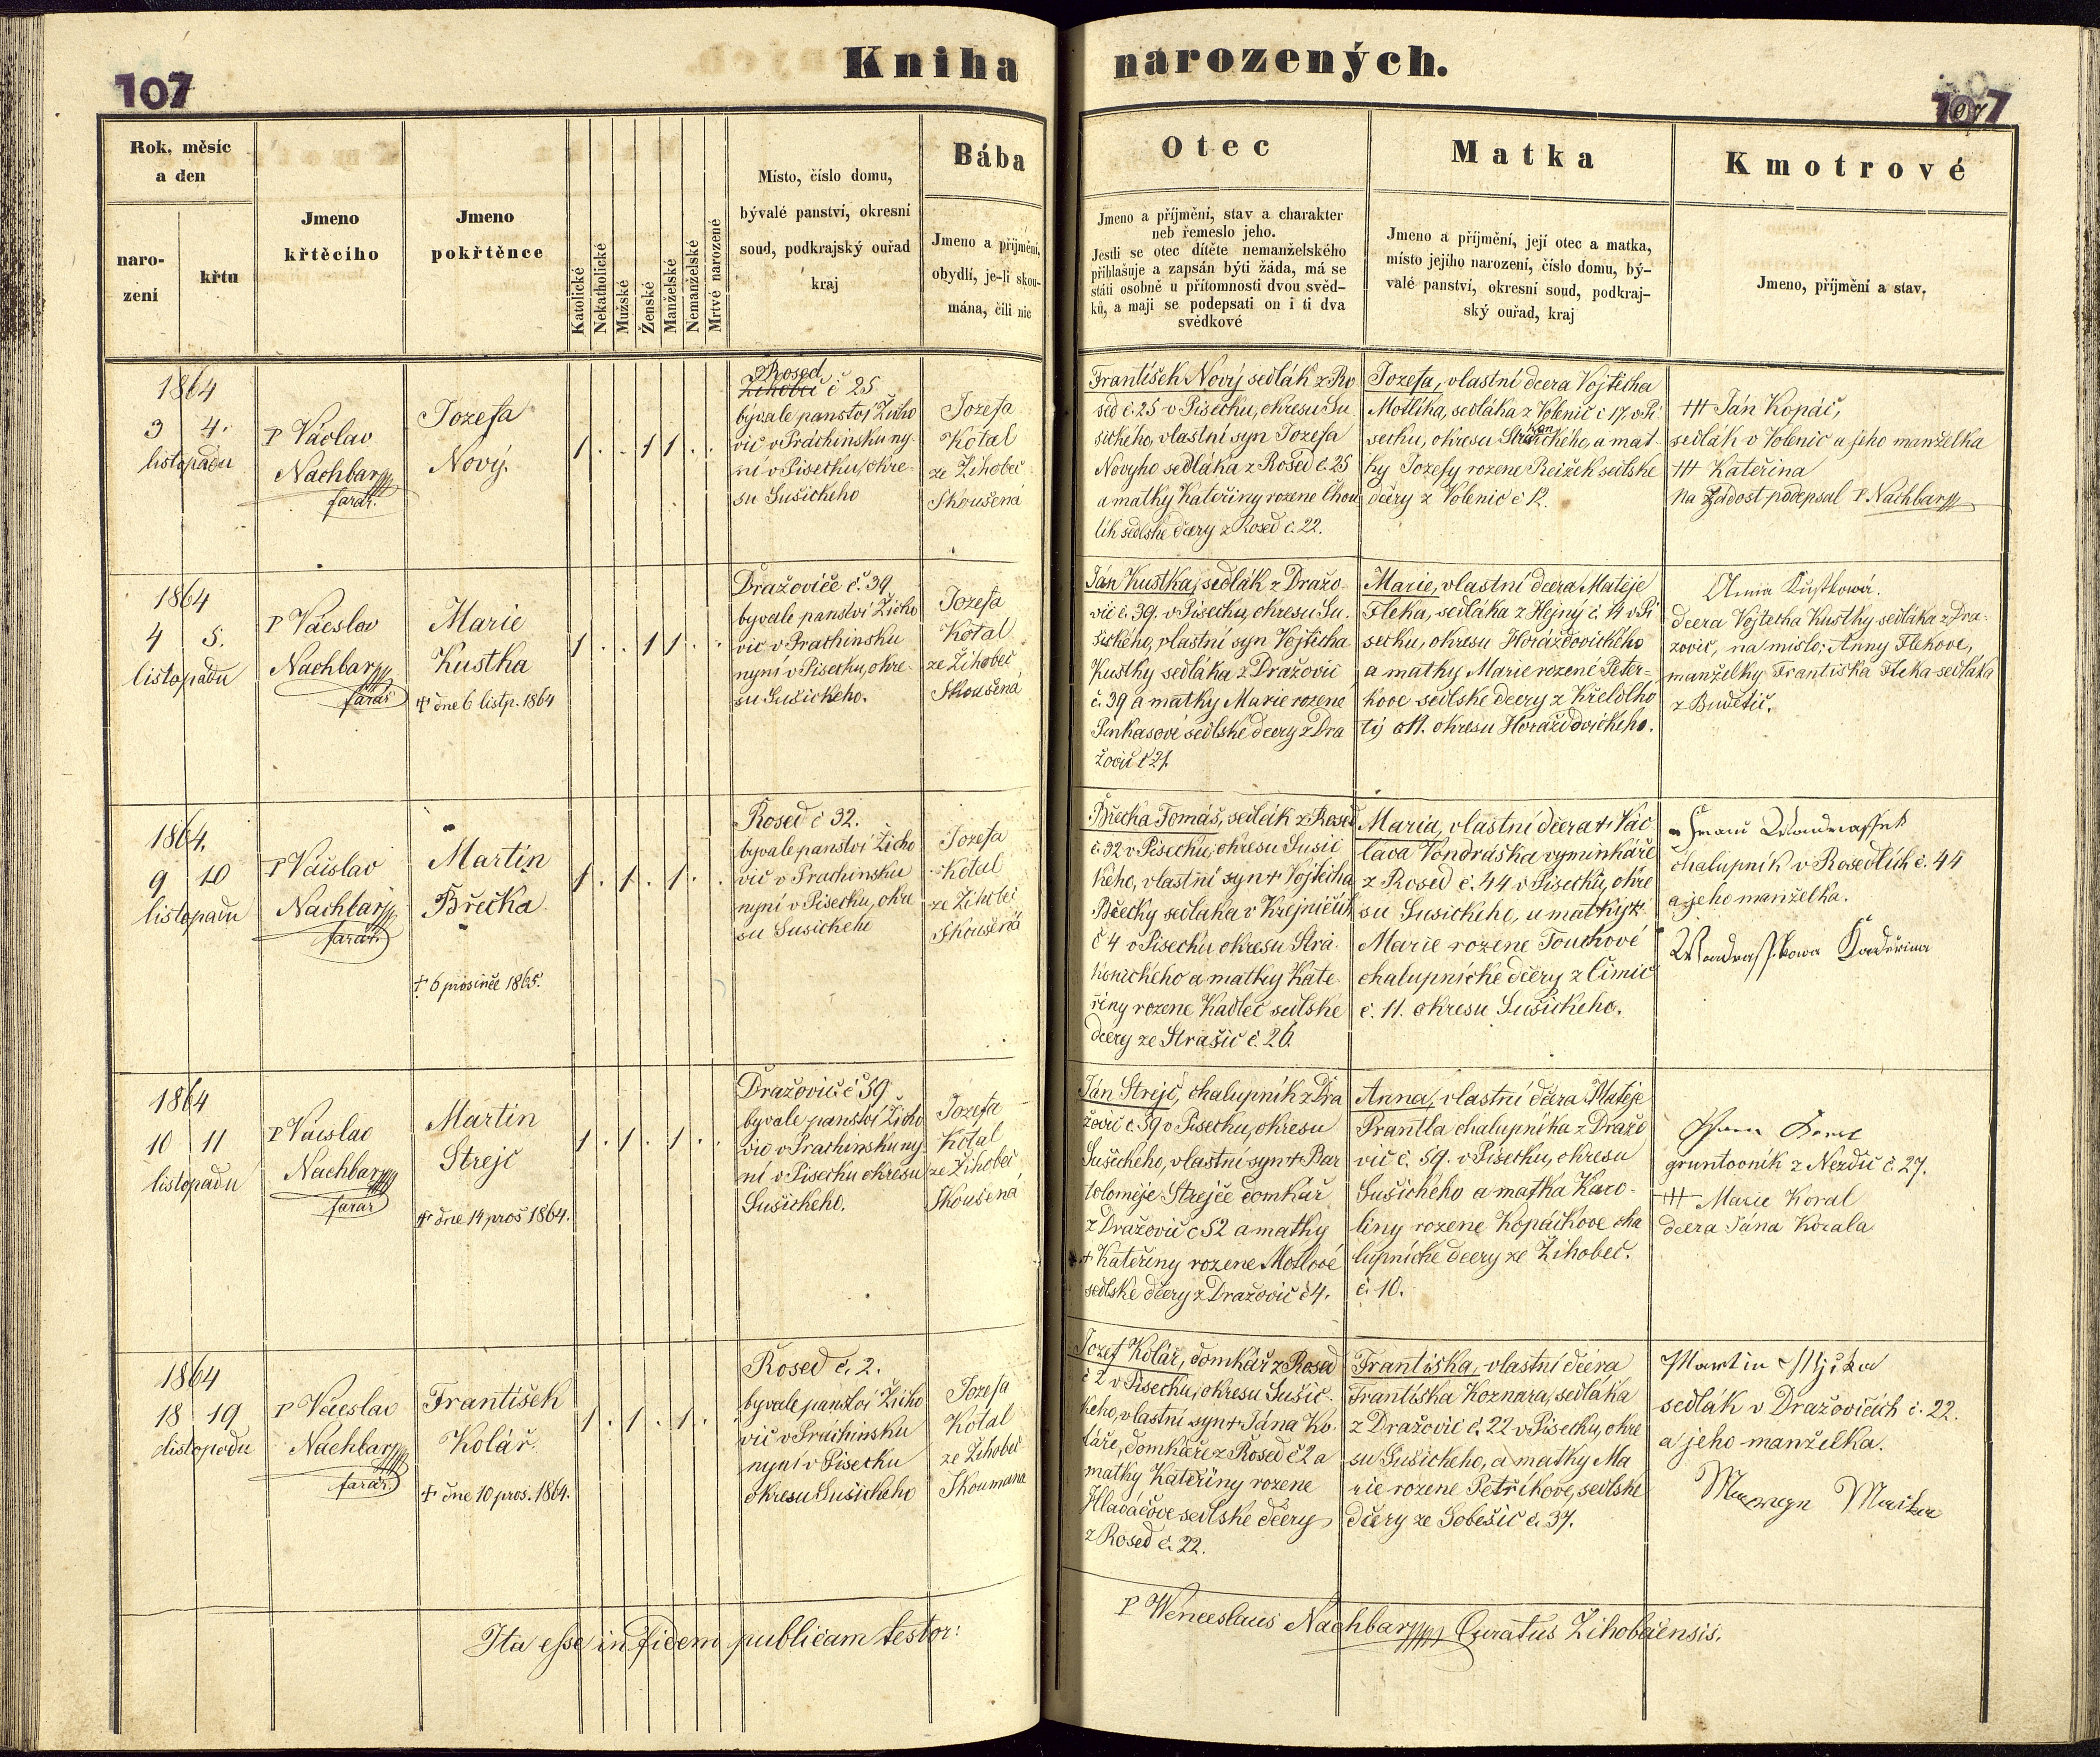 107
Kniha narozených.
107
Rok, měsíc
a den
naro-
zení
křtu
Jmeno
křtěcího
Jmeno
pokřtěnce
Katolické
Nekatholické
Mužské
Ženské
Manželské
Nemanželské
Mrtvé narozené
Místo, číslo domu,
bývalé panství, okresní
soud, podkrajský ouřad
kraj
Bába
Jmeno a příjmění,
obydlí, je-li skou-
mána, čili nic
Otec
Jmeno a příjmění, stav a charakter
neb řemeslo jeho.
Jestli se otec dítěte nemanželského
přihlašuje a zapsán býti žáda, má se
státi osobně u přítomnosti dvou svěd-
ků, a mají se podepsati on i ti dva
svědkové
Matka
Jmeno a příjmění, její otec a matka,
místo jejího narození, číslo domu, bý-
valé panství, okresní soud, podkraj-
ský ouřad, kraj
Kmotrové
Jmeno, příjmění a stav.
1864
3 4.
listopadu
P Václav
Nachbar
farář.
Jozefa
Nový.
1 . . 1 1 . .
Rosed
Žihobcí č 25
bývale panství Žicho
vic v Práchinsku ny-
ní v Písecku, okre-
su Sušickeho
Jozefa
Kotal
ze Žihobec
Skoušená
František Nový sedlák z Ro
sed č. 25 v Písecku, okresu Su
šického, vlastní syn Jozefa
Novyho sedláka z Rosed č. 25
a matky Kateřiny rozene Chou
lik sedlske dcery z Rosed č. 22.
Jozefa, vlastní dcera Vojtěcha
Motlíka, sedláka z Volenic č 17, v Pí
secku, okresu Strakonického, a mat-
ky Jozefy rozene Reižek sedlske
dcery z Volenic č 12.
+++ Ján Kopáč,
sedlák v Volenic a jeho manželka
+++ Kateřina
na žádost podepsal P Nachbar
1864
4 5.
listopadu
P Václav
Nachbar
farář
Marie
Kustka
† dne 6 listp. 1864
1 . . 1 1 . .
Dražoviče č. 39
byvale panství Žicho
vic v Prachinsku
nyní v Písecku, okre-
su Sušickeho.
Jozefa
Kotal
ze Žihobec
Skoušená
Ján Kustka, sedlák z Dražo-
vic č. 39. v Písecku, okresu Su-
šického, vlastní syn Vojtěcha
Kustky sedláka z Dražovic
č. 39 a matky Marie rozene
Pinkasové sedlské dcery z Dra
žovic č 21.
Marie, vlastní dcera Matěje
Fleka, sedláka z Hejný č. 14 v Pí
secku, okresu Horážďovického
a matky Marie rozené Peter-
kove sedlske dcery z
tý č 11. okresu Horážďovickeho.
Anna Kustkowá.
dcera Vojtecha Kustky sedláka z Dra-
žovic, na místo: Anny Flekove,
manželky Františka Fleka sedláka
z Budětic.
1864.
9 10
listopadu
P Václav
Nachbar
farář.
Martin
Břečka
† 6 prosince 1865.
1 . 1 . 1 . .
Rosed č 32.
byvale panství Žicho
vic v Prachinsku
nyní v Písecku, okre
su Susickeho
Jozefa
Kotal
ze Žihobec
Skoušená
Břečka Tomáš, sedlák z Rosed
č. 32 v Písecku, okresu Susic
kého, vlastní syn † Vojtěcha
Břečky sedláka v Krejničích
č 4 v Písecku okresu Stra-
konického a matky Kate-
řiny rozene Kadlec sedlske
dcery ze Strašic č. 26.
Maria, vlastní dcera † Vác
lava Vondráška vyminkáře
z Rosed č. 44 v Písecku, okre
su Susickeho, a matky †
Marie rozene Touchové
chalupnické dcery z Čimic
č. 11. okresu Sušickeho.
chalupník v Rosedlích č. 44
a jeho manželka.
1864
10 11
listopadu
P Václav
Nachbar
farář
Martin
Strejc
† dne 14 pros 1864.
1 . 1 . 1 . .
Dražovic č 59
byvale panství Žicho
vic v Prachinsku ny
ní v Písecku okresu
Sušickeho.
Jozefa
Kotal
ze Žihobec
Skoušená
Ján Strejc, chalupník z Dra
žovic č 59 v Písecku, okresu
Sušickeho, vlastní syn † Bar
tolomeje Strejče domkář
z Dražovic č 52 a matky
† Kateřiny rozene Motlové
sedlske dcery z Dražovic č 4.
Anna, vlastní dcera Matěje
Prantla chalupníka z Dražo
vic č. 59. v Písecku, okresu
Sušického a matka Karo-
liny rozene Kopáčkove cha
lupnicke dcery ze Žihobec.
č. 10.
gruntovník z Nezdic č. 27.
+++ Marie Koral
dcera Jána Korala
1864
18 19
listopadu
P Václav
Nachbar
farář
František
Kolář.
† dne 10 pros. 1864.
1 . 1 . 1 .
Rosed č. 2.
byvale panství Žicho
vic v Práchinsku
nyní v Písecku
okresu Sušickeho
Jozefa
Kotal
ze Žihobec
Skoumana
Jozef Kolář, domkář z Rosed
č 2 v Písecku, okresu Sušic-
keho, vlastní syn † Jána Ko-
láře, domkáře z Rosed č 2 a
matky Kateřiny rozene
Hlaváčove sedlske dcery
z Rosed č. 22.
Františka, vlastní dcera
Františka Koznara, sedláka
z Dražovic č. 22 v Písecku, okre
su Sušickeho, a matky Ma
rie rozene Petříkove, sedlske
dcery ze Soběšic č. 37.
Martin
sedlák v Dražovicích č. 22.
a jeho manželka.
Ita esse in fidem publicam testor:
P Wenceslaus Nachbar Curatus Žihobcensis.